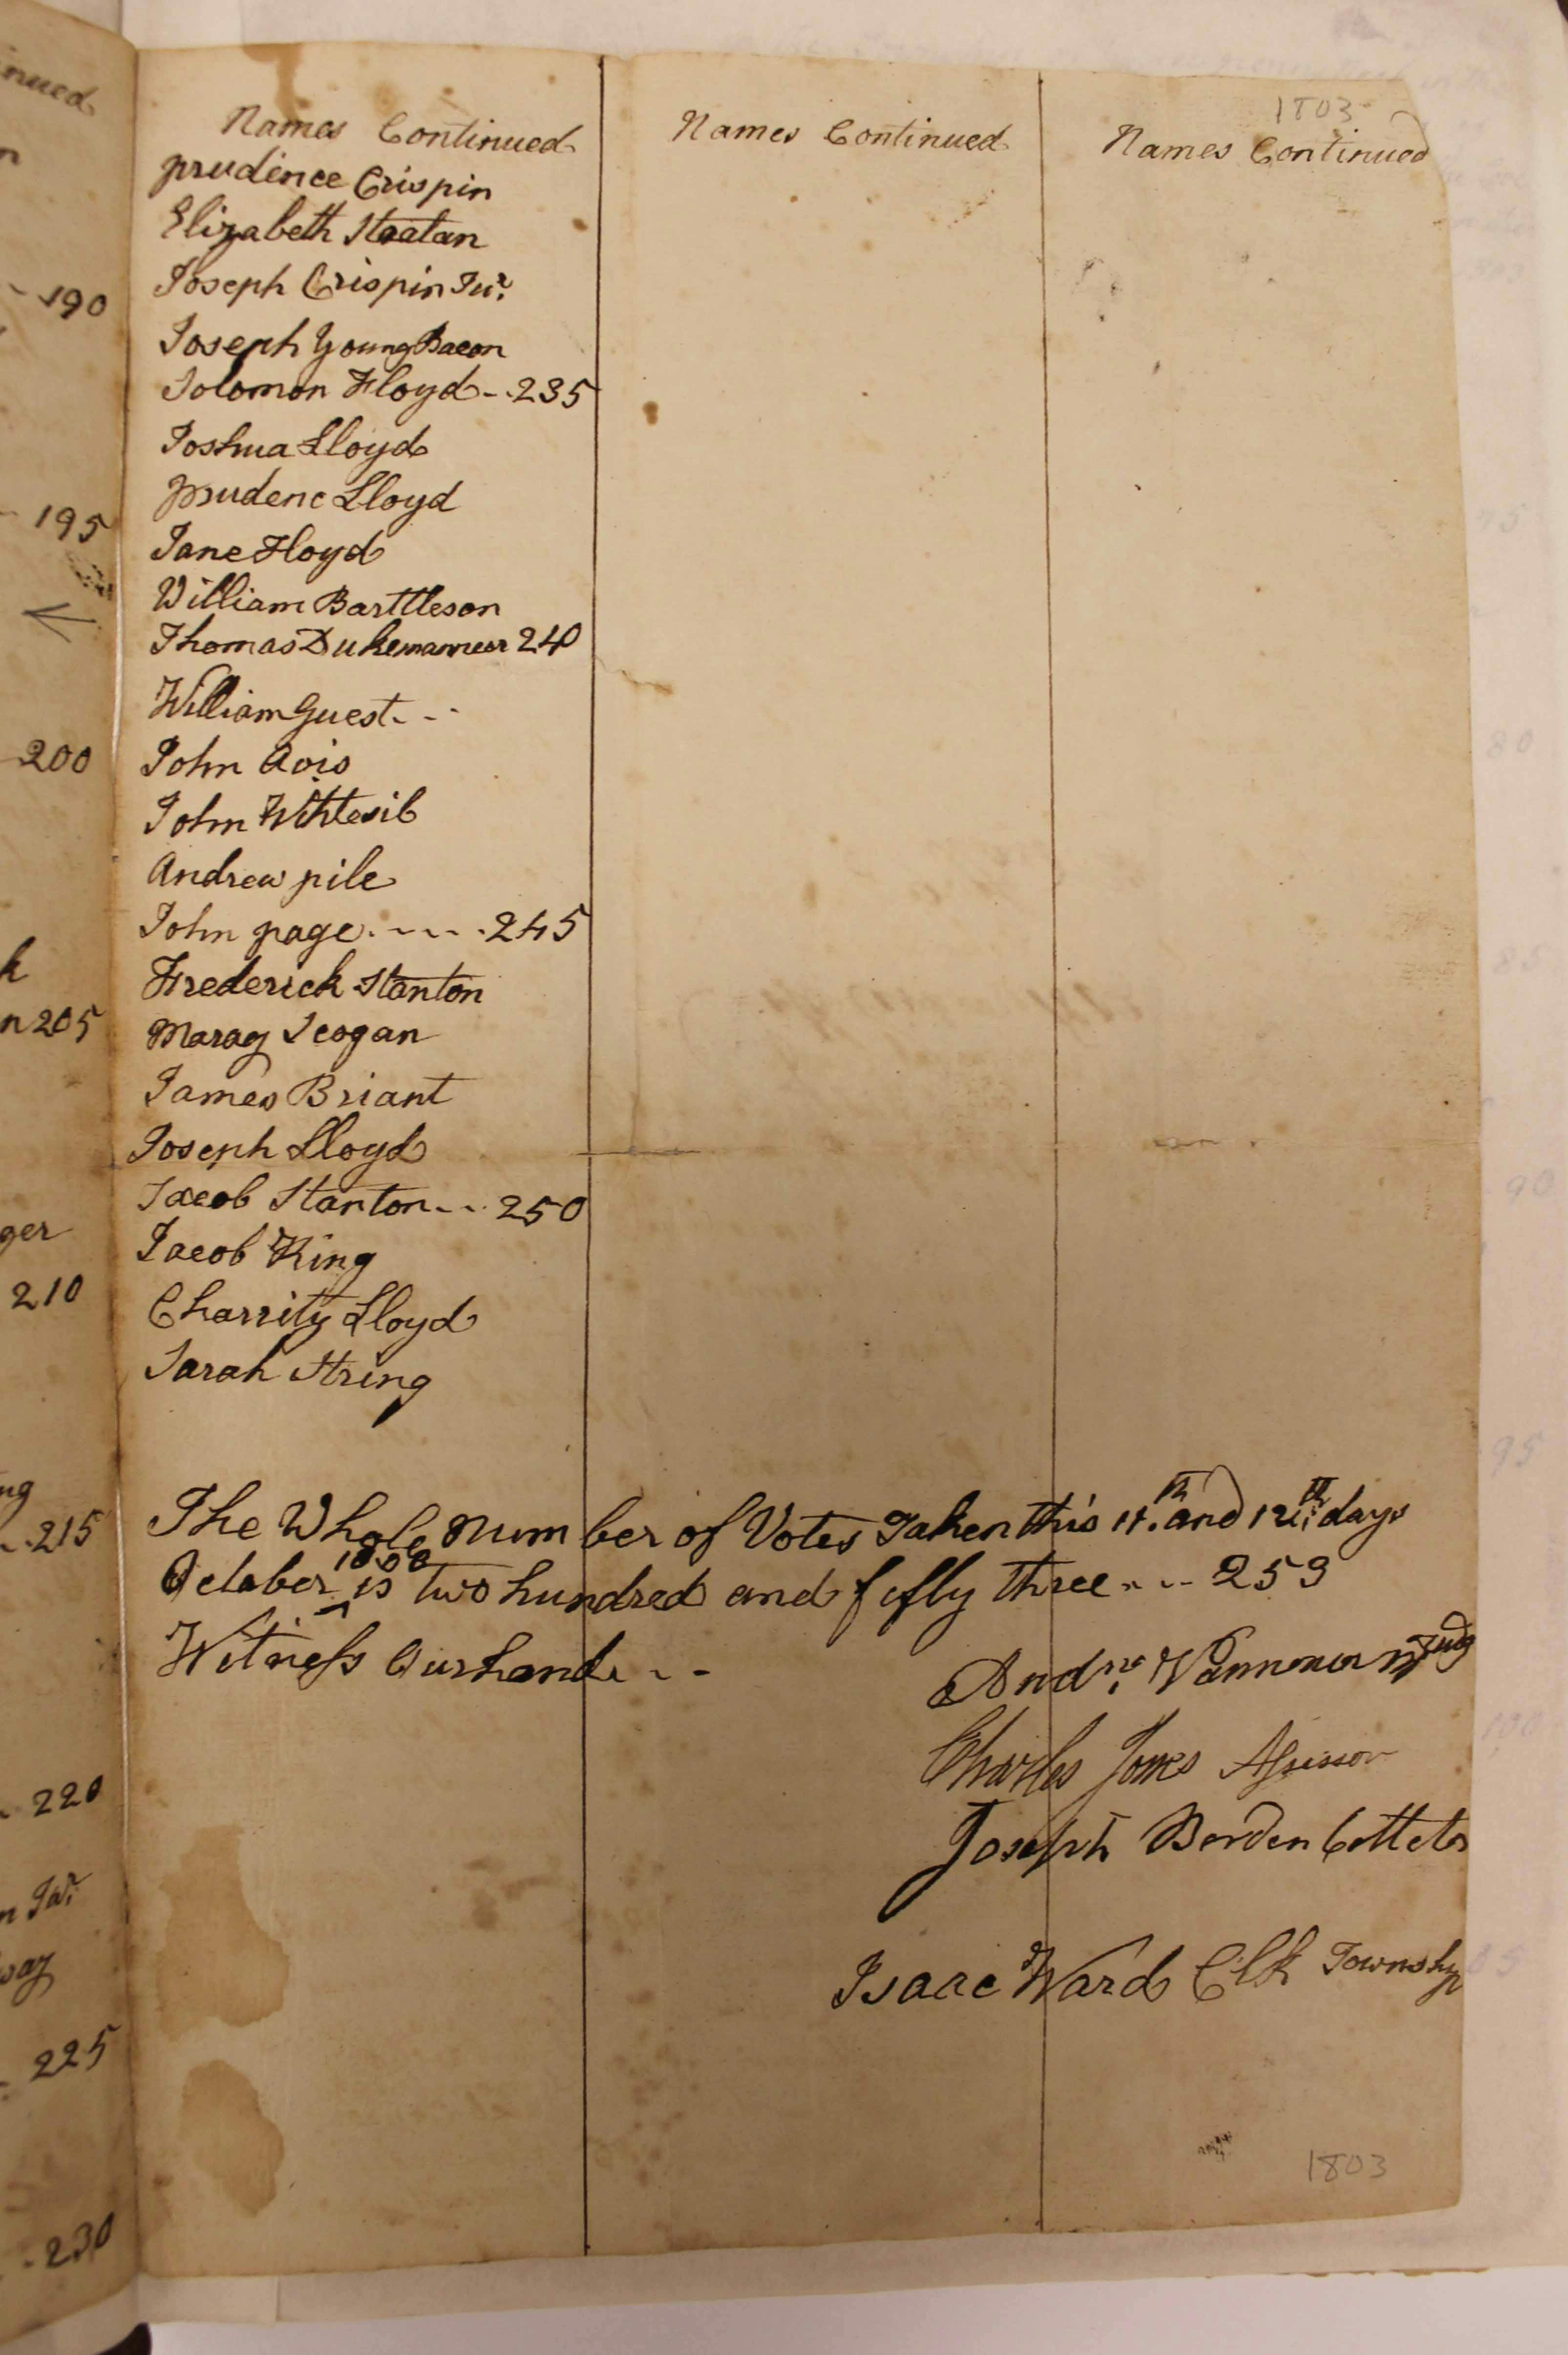 nued
190
195
200
k
n 205
ger
210
ng
215
220
n Jur.
way
225
230
1803
Names Continued
prudence Crispin
Elizabeth Statan
Joseph Crispin Jur.
Joseph Young Bacon
Solomon Floyd - . 235
Joshua Lloyd
prudenc Lloyd
Jane Floyd
William Barttleson
Thomas Dukemanneer 240
William Guest - - -
John Avis
John Whtesil
Andrew pile
John page . - - - . 245
Frederick Stanton
Maray Scogan
James Briant
Joseph Lloyd
Jacob Stanton - - . 250
Jacob King
Charrity Lloyd
Sarah String
Names Continued
Names Continued
The Whole Number of Votes Taken this 11th. and 12th. days
October 1803 is two hundred and fifty three - - - 253
Witness Our hands - -
Andrw. Vanneman Judg
Charles Jones Assessor
Joseph Borden Collctr
Isaac Ward Clk Township
1803